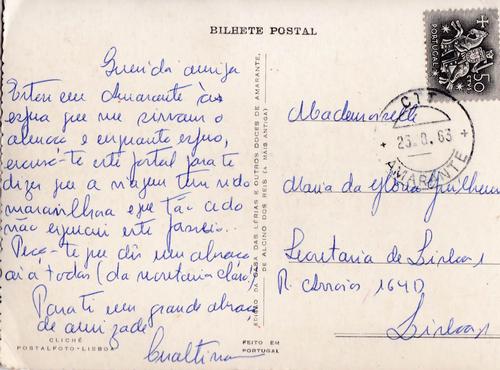 BILHETE POSTAL
Querida amiga
Estou em Amarante às
espera que me sirvam o
almoço e enquanto espero,
envio-te este postal para te
dizer que a viagem tem sido
maravilhosa e que tão cedo
não esquecerei este passeio..
Peço-te que dês um abraço
aí a todos (da secretaria claro!)
Para ti um grande abraço
de amizade
CLICHÉ
POSTALFOTO-LISBOA
EDIÇÃO DA CASA DAS LÉRIAS E OUTROS DOCES DE AMARANTE,
DE ALCINO DOS REIS (A MAIS ANTIGA)
FEITO EM
PORTUGAL
PORTUGAL
1$50
CTT
AMARANTE
Mademoiselle
Maria da Glória Guilherme
Secretaria de Lisboa 1
R. Arroios 164D
Lisboa 1